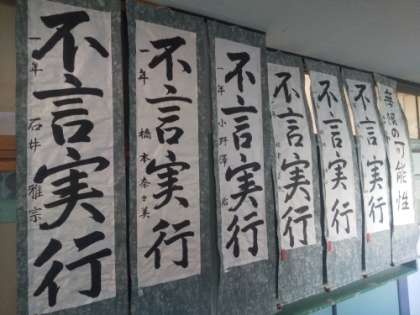 不言実行
一年 石井 雅宗
不言実行
一年 橋本奈々美
不言実行
一年 小野澤
不言実行
不言実行
不言実行
無限の可能性